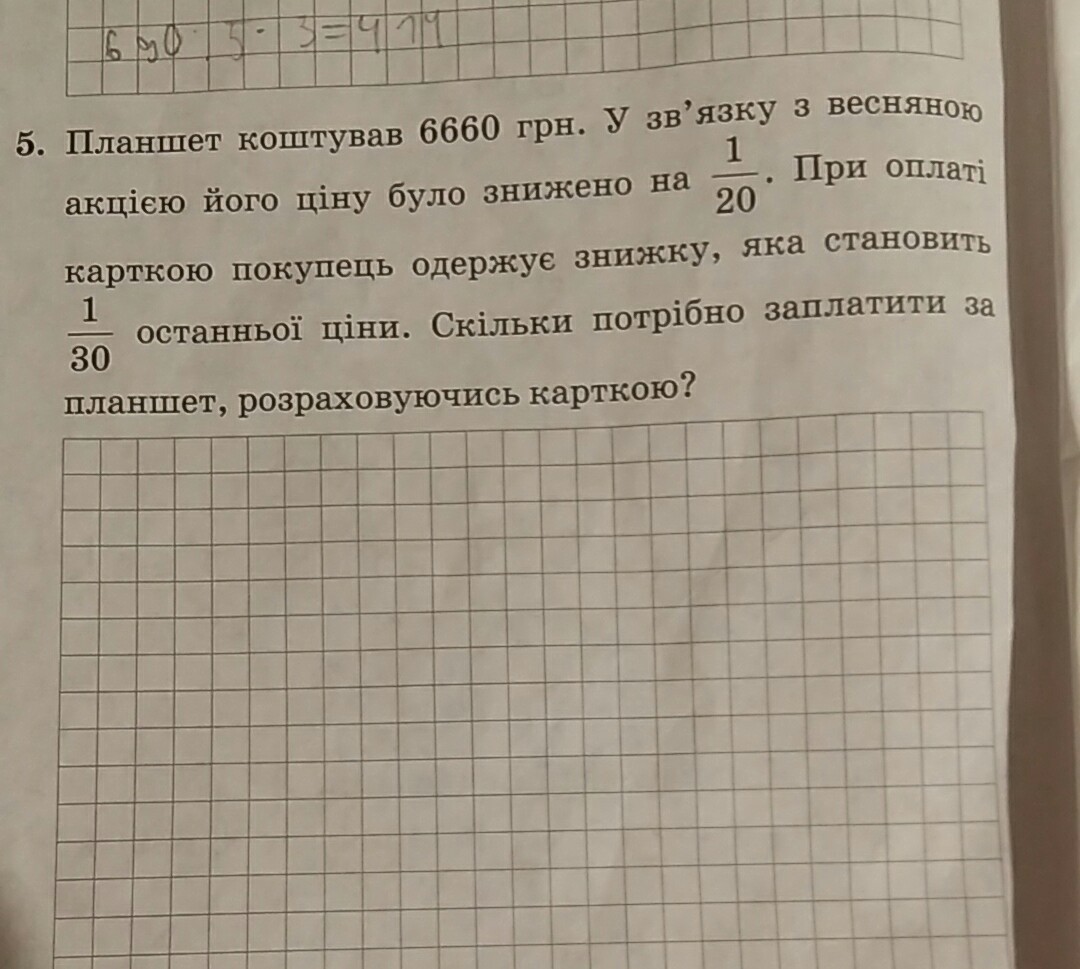 3 = 4
5. Планшет коштував 6660 грн. У зв’язку з весняною
акцією його ціну було знижено на 1/20. При оплаті
карткою покупець одержує знижку, яка становить
1/30 останньої ціни. Скільки потрібно заплатити за
планшет, розраховуючись карткою?